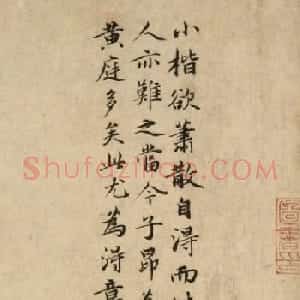 小楷欲蕭散自得而
人亦難之當今子昂
黃庭多矣此尤為得意
Shufazi